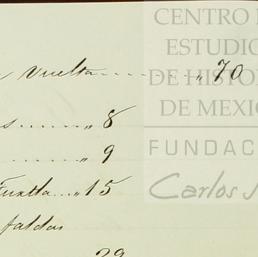 vuelta ....... „ 70
s ........ „ 8
........ „ 9
Tuxtla .... „ 15
faldas
29
CENTRO
ESTUDIO
DE HISTOR
DE MEXI
FUNDAC
Carlos S